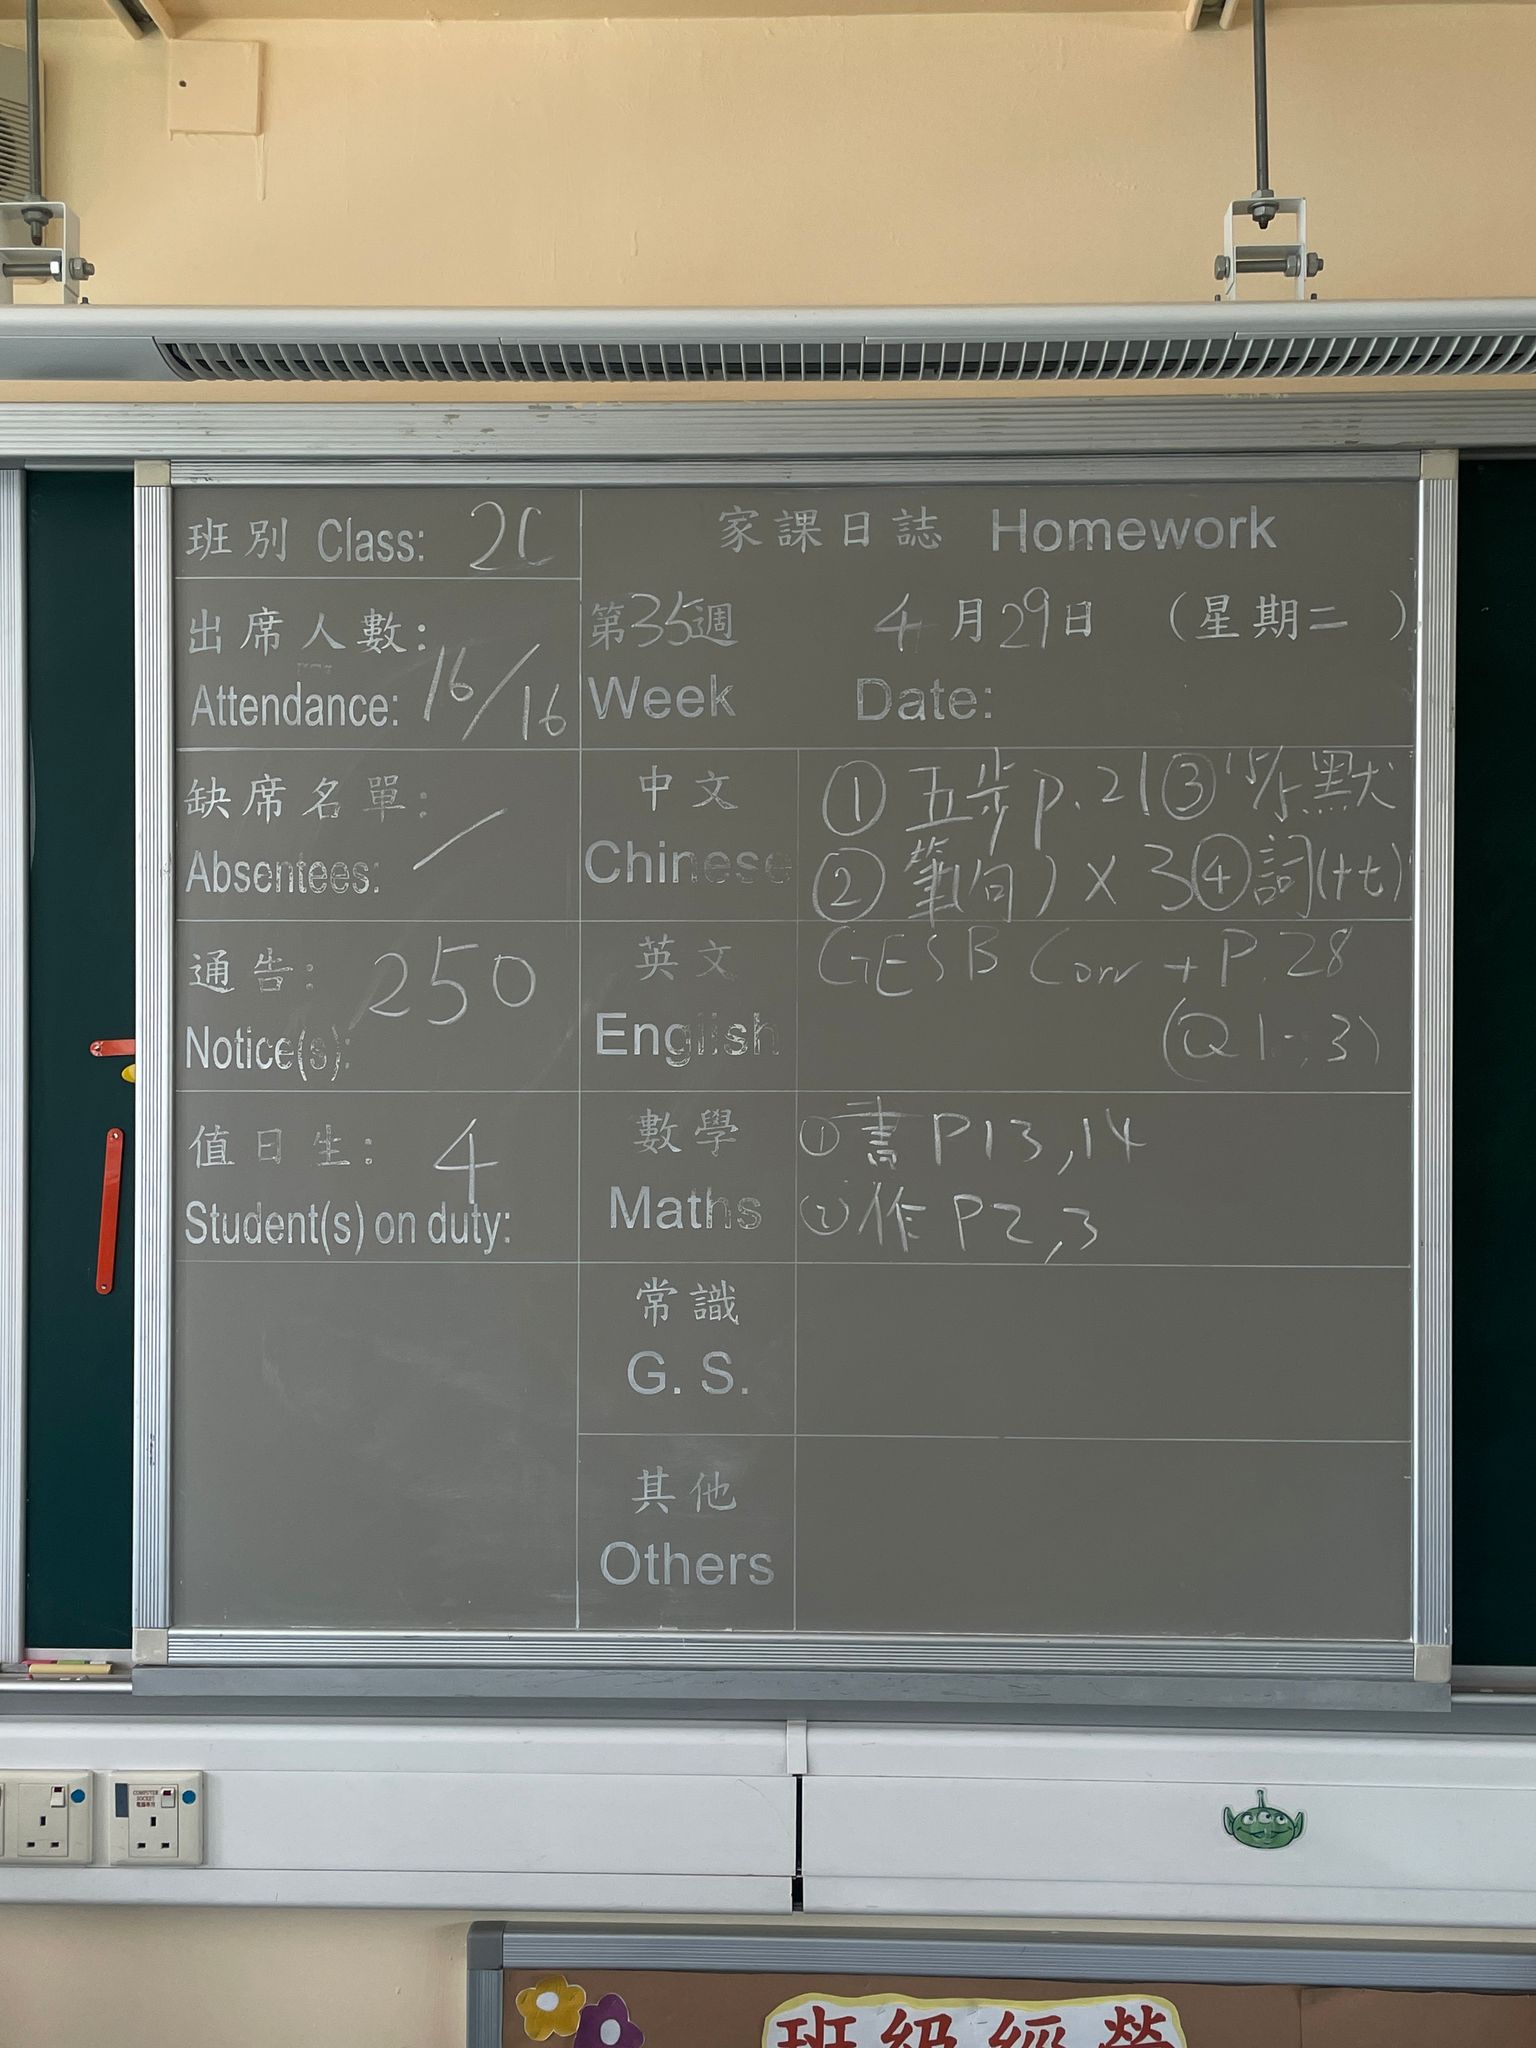 班別 Class: 2C
出席人數:
Attendance: 16/16
缺席名單:
Absentees: /
通告: 250
Notice(s):
值日生: 4
Student(s) on duty:
家課日誌 Homework
第35週 4月29日 (星期二)
Week Date:
中文
Chinese
① 五步p.21 ③ 15/5默
② 筆(句)×3 ④ 詞(十七)
英文
English
GESB Corr + P.28
(Q1-3)
數學
Maths
① 書 P13,14
② 作 P2,3
常識
G. S.
其他
Others
COMPUTER SOCKET
電腦專用
班級經營